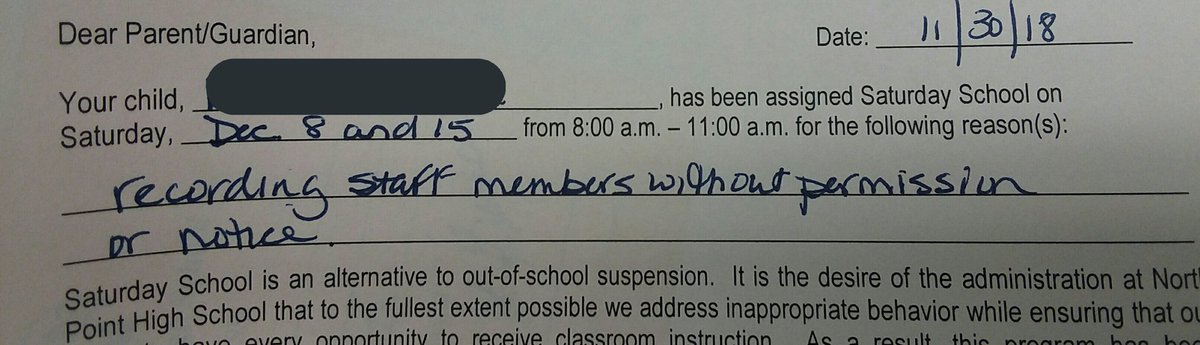 Dear Parent/Guardian, Date: 11/30/18
Your child, , has been assigned Saturday School on
Saturday, Dec. 8 and 15 from 8:00 a.m. – 11:00 a.m. for the following reason(s):
recording staff members without permission
or notice.
Saturday School is an alternative to out-of-school suspension. It is the desire of the administration at North
Point High School that to the fullest extent possible we address inappropriate behavior while ensuring that ou
have every opportunity to receive classroom instruction. As a result, this program has bee